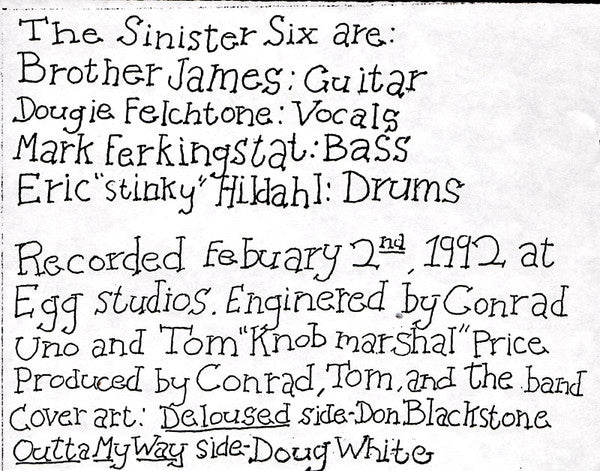 The Sinister Six are:
Brother James: Guitar
Dougie Felchtone: Vocals
Mark Ferkingstat: Bass
Eric "stinky" Hildahl: Drums
Recorded Febuary 2nd, 1992 at
Egg studios. Enginered by Conrad
Uno and Tom "Knob marshal" Price
Produced by Conrad, Tom, and the band
Cover art: Deloused side-Don Blackstone
Outta My Way side-Doug White